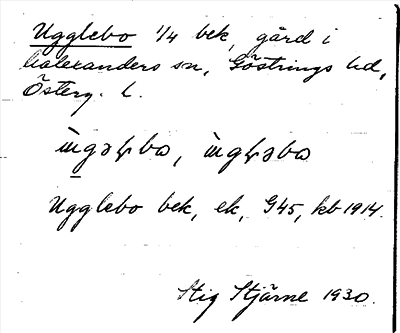 Ugglebo 1/4 bek, gård i
Kalexanders sn, Göstrings hd,
Österg. l.
Ugglebo bek, ek, G45, kb 1914.
Stig Stjärne 1930.